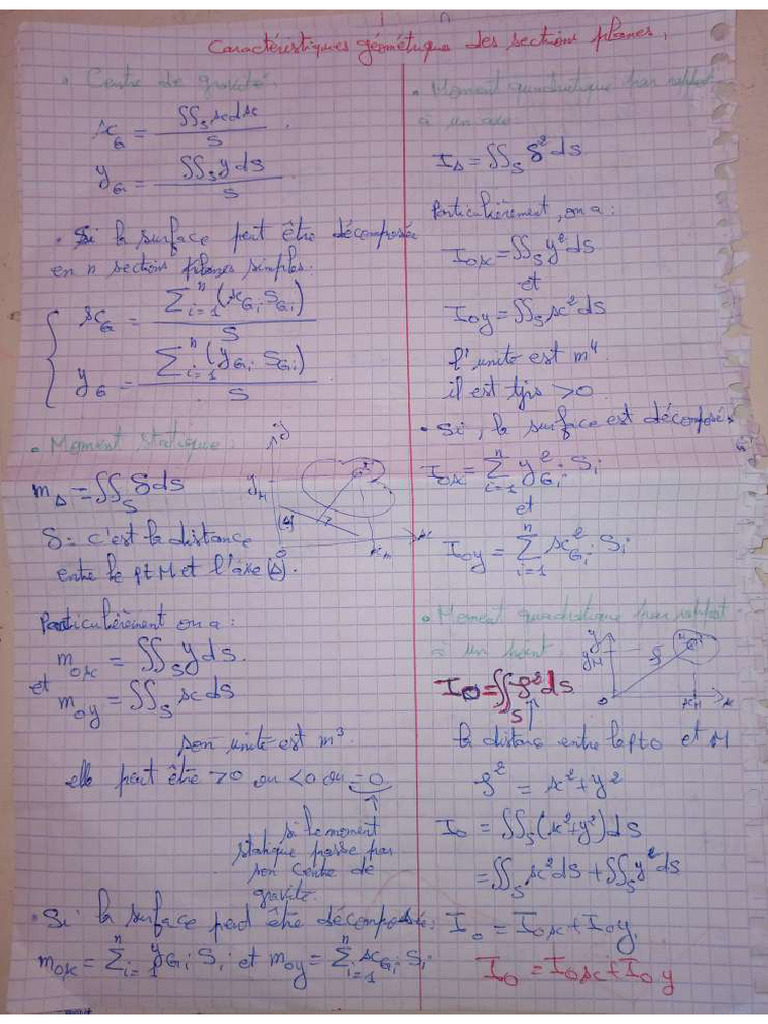 Caractéristiques géométrique des sections planes.
• Centre de gravité.
x_G = ∬_S x ds / S
y_G = ∬_S y ds / S
• Si la surface peut être décomposée
en n sections planes simples:
x_G = Σ_{i=1}^n (x_{Gi} S_{Gi}) / S
y_G = Σ_{i=1}^n (y_{Gi} S_{Gi}) / S
• Moment statique:
m_Δ = ∬_S δ ds
δ: c'est la distance
entre le pt M et l'axe (Δ).
y
y_M
(Δ)
o
x_M
x
Particulièrement on a:
m_{ox} = ∬_S y ds.
et
m_{oy} = ∬_S x ds
son unité est m³.
elle peut être >0 ou <0 ou =0
si le moment
statique passe par
son centre de
gravité.
• Si la surface peut être décomposée:
m_{ox} = Σ_{i=1}^n y_{Gi} S_i et m_{oy} = Σ_{i=1}^n x_{Gi} S_i
• Moment quadratique par rapport
à un axe
I_Δ = ∬_S δ² ds
Particulièrement, on a:
I_{ox} = ∬_S y² ds
et
I_{oy} = ∬_S x² ds
l'unité est m⁴
il est tjrs >0
• Si, la surface est décomposés
I_{ox} = Σ_{i=1}^n y²_{Gi} S_i
et
I_{oy} = Σ_{i=1}^n x²_{Gi} S_i
• Moment quadratique par rapport
à un point.
y
y_M
ρ
M
o
x_M
x
I_O = ∬_S ρ² ds
la distans entre le pt O et M
ρ² = x² + y²
I_o = ∬_S (x² + y²) ds
= ∬_S x² ds + ∬_S y² ds
I_o = I_{ox} + I_{oy}.
I_o = I_{ox} + I_{oy}